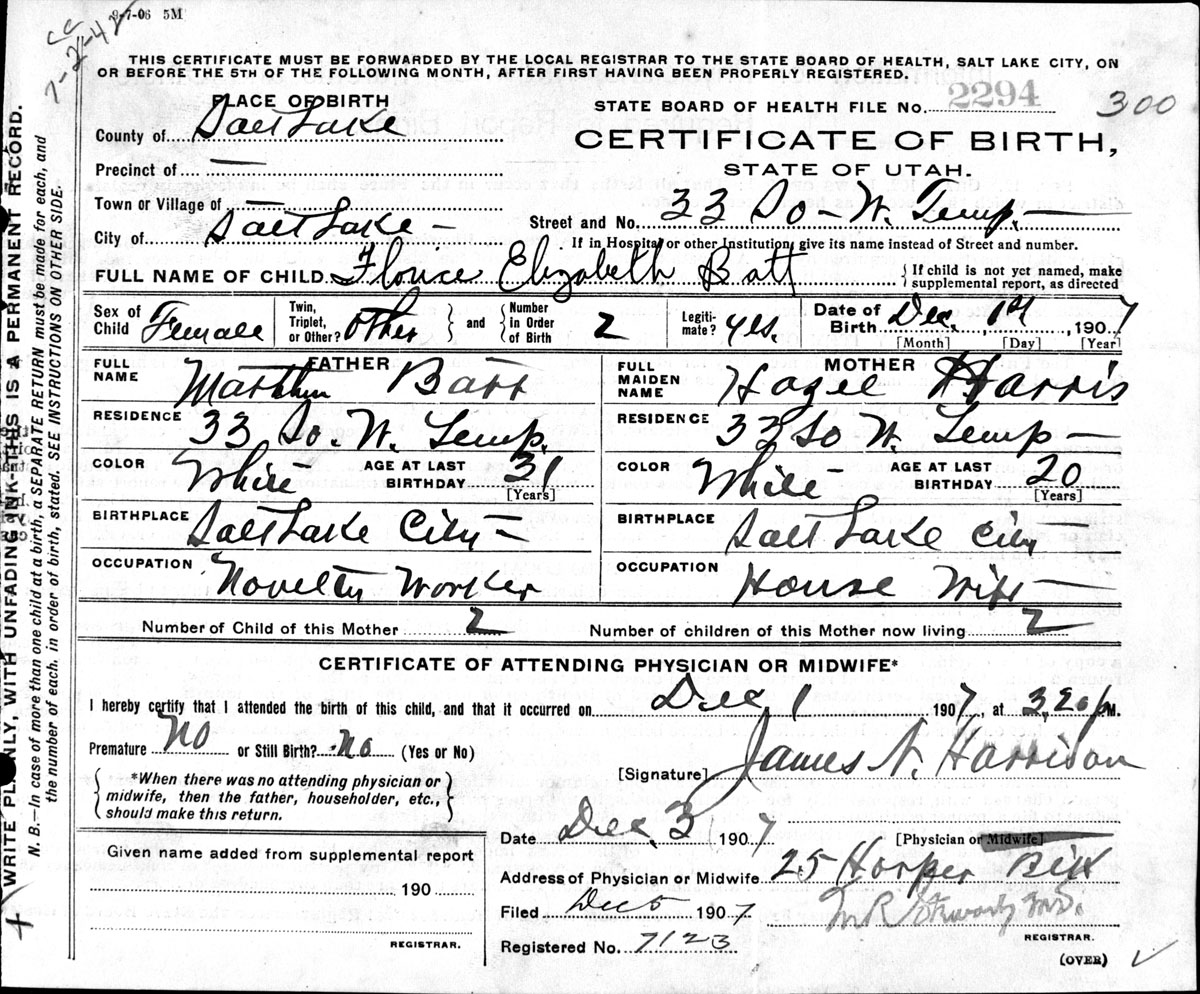 9-7-06 5M
CC
7-21-42
THIS CERTIFICATE MUST BE FORWARDED BY THE LOCAL REGISTRAR TO THE STATE BOARD OF HEALTH, SALT LAKE CITY, ON
OR BEFORE THE 5TH OF THE FOLLOWING MONTH, AFTER FIRST HAVING BEEN PROPERLY REGISTERED.
PLACE OF BIRTH
STATE BOARD OF HEALTH FILE No. 2294 300
County of Salt Lake
CERTIFICATE OF BIRTH,
STATE OF UTAH.
Precinct of —
Town or Village of —
Street and No. 33 So - W. Temp. —
City of Salt Lake —
If in Hospital or other Institution, give its name instead of Street and number.
FULL NAME OF CHILD Florice Elizabeth Batt
{ If child is not yet named, make
supplemental report, as directed
Sex of Child Female
Twin, Triplet, or Other? other } and { Number in Order of Birth 2
Legiti- mate? yes.
Date of Birth Dec. 1st, 1907
[Month] [Day] [Year]
FATHER
FULL NAME Matthew Batt
RESIDENCE 33 So. W. Temp.
COLOR White AGE AT LAST BIRTHDAY 31 [Years]
BIRTHPLACE Salt Lake City —
OCCUPATION Novelty Worker
MOTHER
FULL MAIDEN NAME Hazel Harris
RESIDENCE 33 So W. Temp —
COLOR White AGE AT LAST BIRTHDAY 20 [Years]
BIRTHPLACE Salt Lake City
OCCUPATION House Wife —
Number of Child of this Mother 2 Number of children of this Mother now living 2
CERTIFICATE OF ATTENDING PHYSICIAN OR MIDWIFE*
I hereby certify that I attended the birth of this child, and that it occurred on Dec 1 1907, at 3,20 P M.
Premature No or Still Birth? No (Yes or No)
[Signature] James N. Harrison
{ *When there was no attending physician or
midwife, then the father, householder, etc.,
should make this return. }
Date Dec 3 1907 [Physician or Midwife]
Given name added from supplemental report
190
REGISTRAR.
Address of Physician or Midwife 25 Hooper
Filed Dec 5 1907
REGISTRAR.
Registered No. 7123
(OVER)
WRITE PLAINLY, WITH UNFADING INK—THIS IS A PERMANENT RECORD.
N. B.—In case of more than one child at a birth, a SEPARATE RETURN must be made for each, and
the number of each, in order of birth, stated. SEE INSTRUCTIONS ON OTHER SIDE.